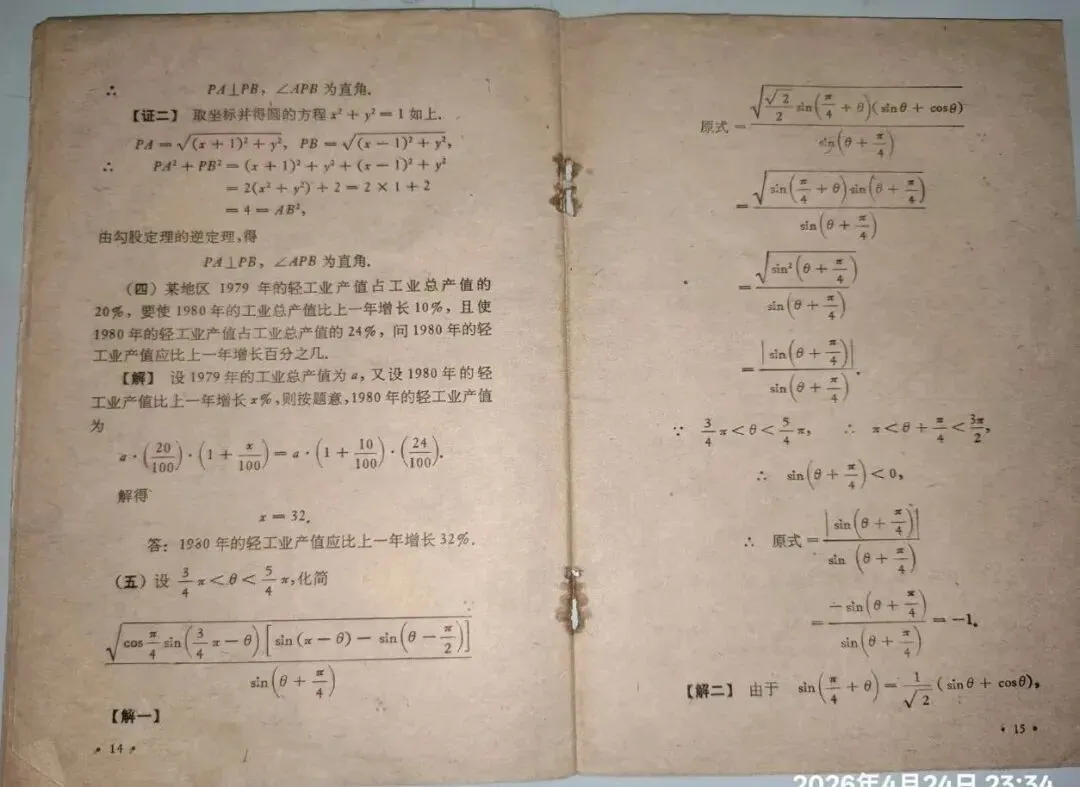 ∴ PA⊥PB, ∠APB 为直角.
【证二】 取坐标并得圆的方程 x² + y² = 1 如上.
PA = √((x + 1)² + y²), PB = √((x − 1)² + y²),
∴ PA² + PB² = (x + 1)² + y² + (x − 1)² + y²
= 2(x² + y²) + 2 = 2 × 1 + 2
= 4 = AB²,
由勾股定理的逆定理,得
PA⊥PB, ∠APB 为直角.
(四) 某地区 1979 年的轻工业产值占工业总产值的
20%, 要使 1980 年的工业总产值比上一年增长 10%, 且使
1980 年的轻工业产值占工业总产值的 24%, 问 1980 年的轻
工业产值应比上一年增长百分之几.
【解】 设 1979 年的工业总产值为 a, 又设 1980 年的轻
工业产值比上一年增长 x%, 则按题意, 1980 年的轻工业产值
为
a · (20/100) · (1 + x/100) = a · (1 + 10/100) · (24/100).
解得
x = 32.
答: 1980 年的轻工业产值应比上一年增长 32%.
(五) 设 3/4 π < θ < 5/4 π, 化简
√(cos π/4 sin(3/4 π − θ) [sin(π − θ) − sin(θ − π/2)]) / sin(θ + π/4)
【解一】
· 14 ·
原式 = √(√2/2 sin(π/4 + θ)(sinθ + cosθ)) / sin(θ + π/4)
= √(sin(π/4 + θ) sin(θ + π/4)) / sin(θ + π/4)
= √(sin²(θ + π/4)) / sin(θ + π/4)
= |sin(θ + π/4)| / sin(θ + π/4).
∵ 3/4 π < θ < 5/4 π, ∴ π < θ + π/4 < 3π/2,
∴ sin(θ + π/4) < 0,
∴ 原式 = |sin(θ + π/4)| / sin(θ + π/4)
= −sin(θ + π/4) / sin(θ + π/4) = −1.
【解二】 由于 sin(π/4 + θ) = 1/√2 (sinθ + cosθ),
· 15 ·
2026年4月24日 23:34